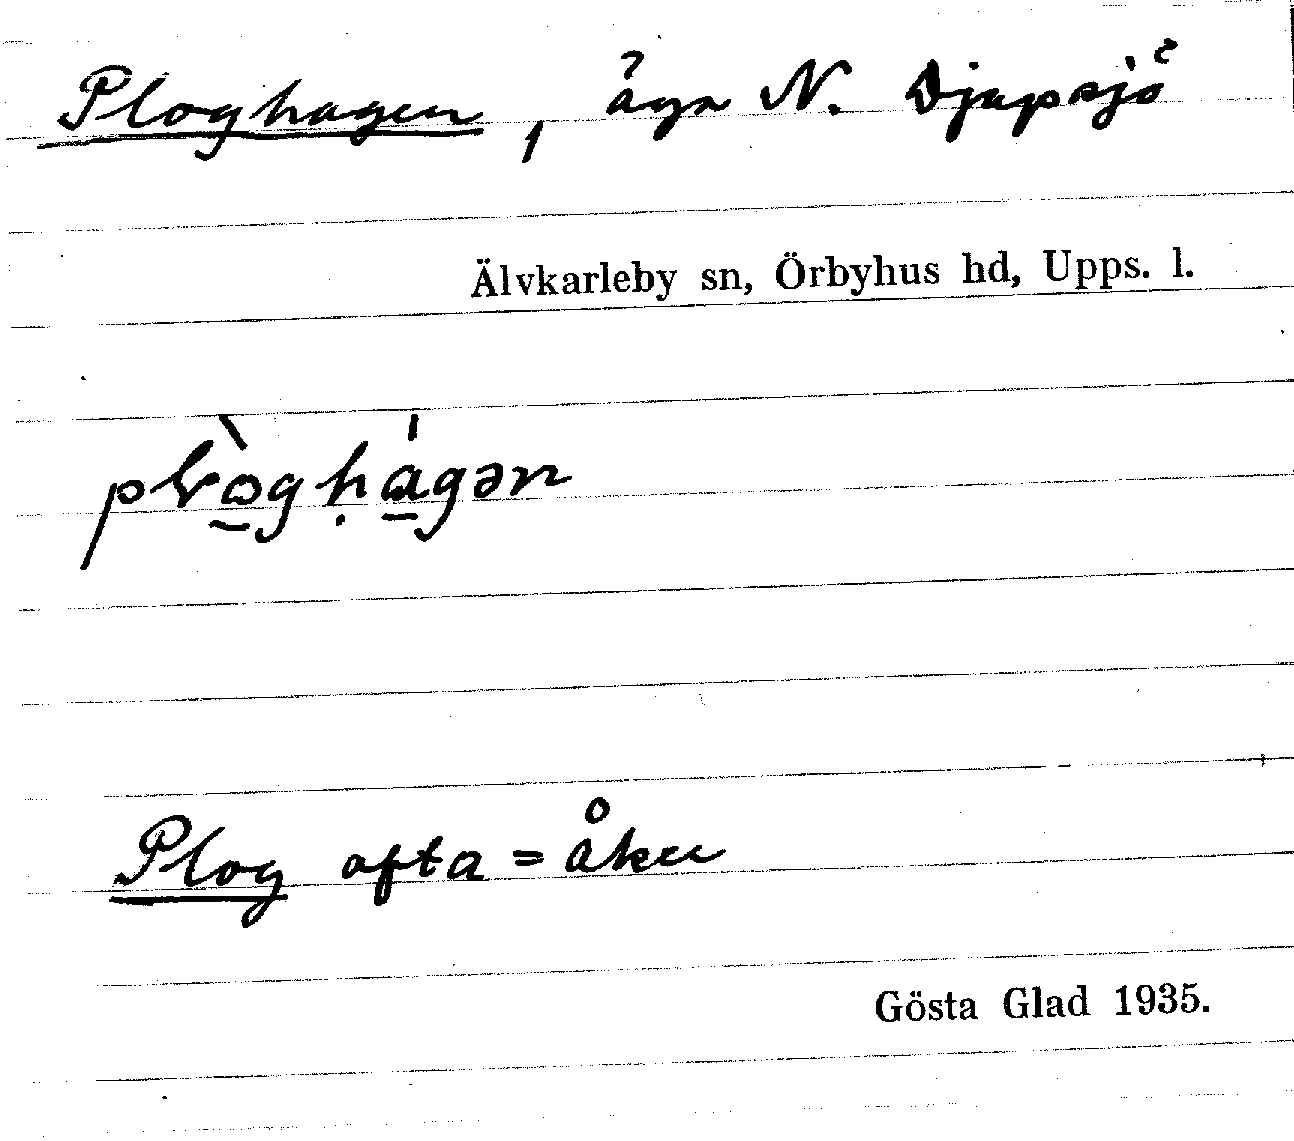 Ploghagen, äga N. Djupsjö
Älvkarleby sn, Örbyhus hd, Upps. l.
Plog ofta = åker
Gösta Glad 1935.